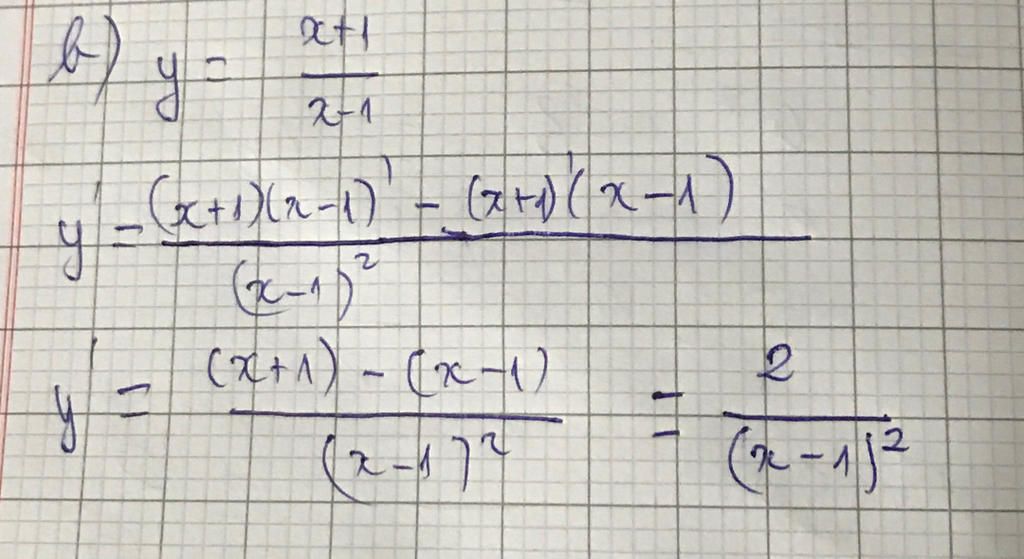 b) y = \frac{x+1}{x-1}
y' = \frac{(x+1)(x-1)' - (x+1)'(x-1)}{(x-1)^2}
y' = \frac{(x+1) - (x-1)}{(x-1)^2} = \frac{2}{(x-1)^2}